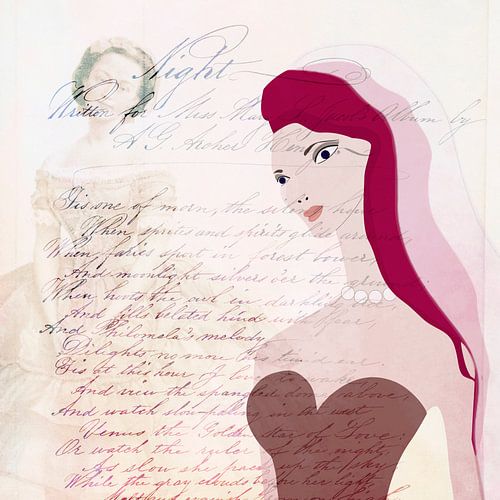 Night
Written for Miss Mary Album by
A G. Archer
Tis one of morn, the silent hour
When sprites and spirits glide around
When fairies sport in forest bower
And moonlight silvers o'er the ground.
When hoots the owl in darkling
And fills belated hind with fear,
And Philomela's melody
Delights no more the ear.
Tis at this hour I love to wake
And view the spangled dome above,
And watch slow-falling in the west
Venus, the Golden star of Love:
Or watch the ruler of the night,
As slow she paces up the sky
While the gray clouds her light